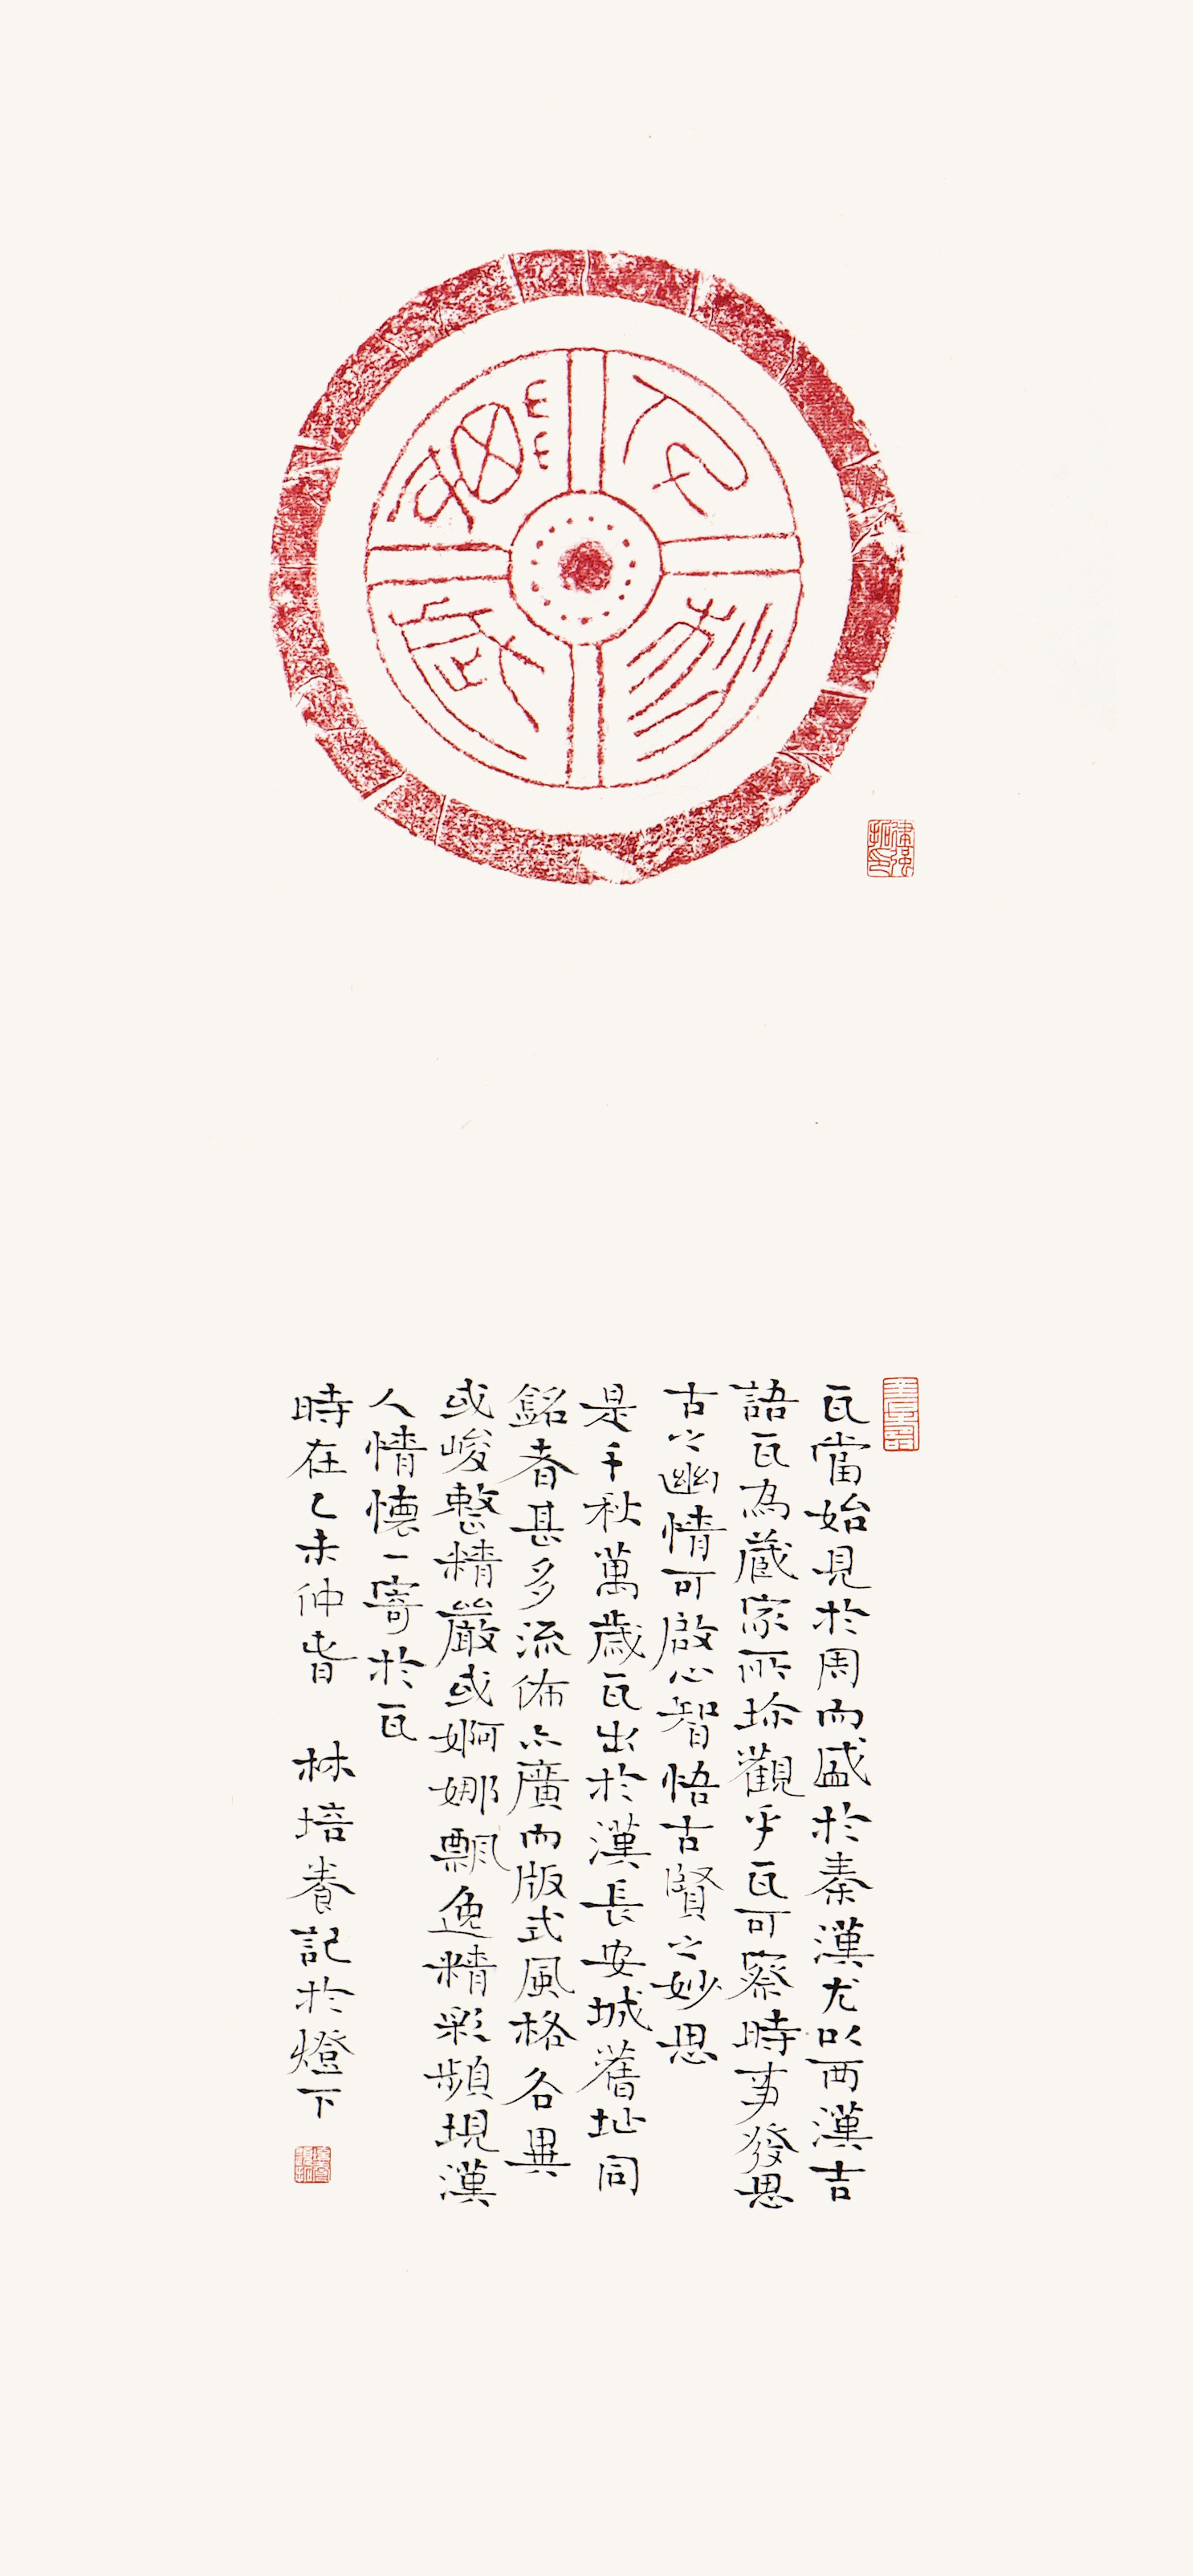 千秋萬歲
瓦當始見於周而盛於秦漢尤以兩漢吉
語瓦為藏家所珍觀乎瓦可察時事發思
古之幽情可啟心智悟古賢之妙思
是千秋萬歲瓦出於漢長安城舊址同
銘者甚多流佈亦廣而版式風格各異
或峻整精嚴或婀娜飄逸精彩頻現漢
人情懷一寄於瓦
時在乙未仲春 林培養記於燈下